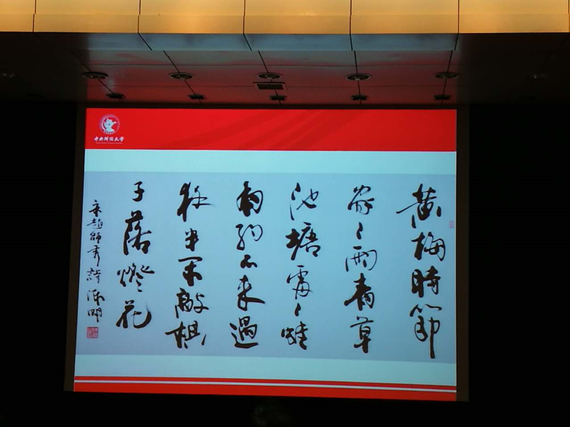 中央财经大学
黄梅時節
家〻雨青草
池塘處〻蛙
有約不来過
夜半閑敲棋
子落燈花
宋趙師秀詩